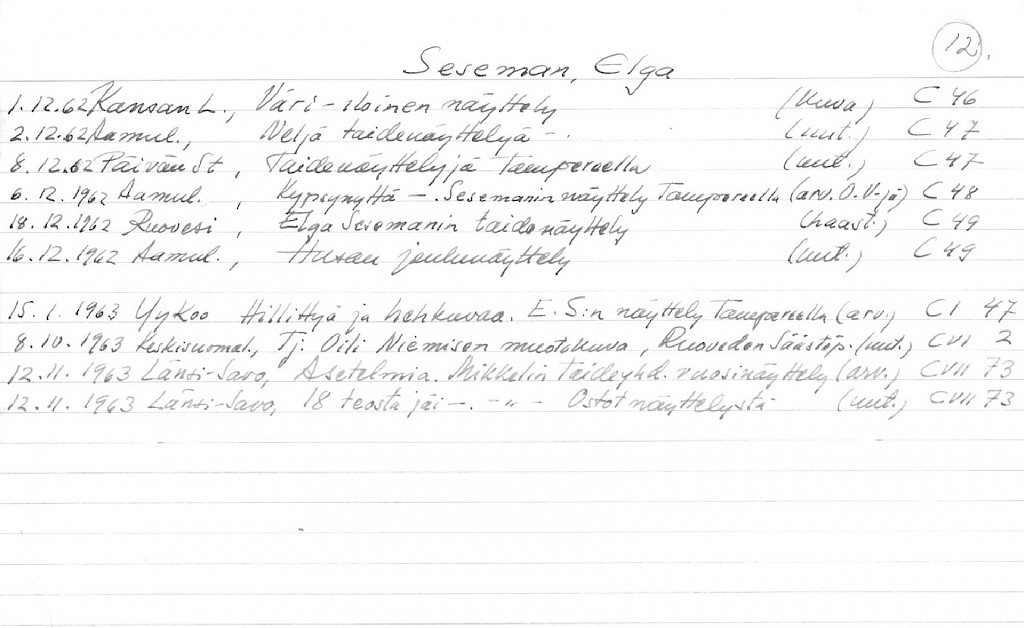 12.
Seseman, Elga
1.12.62 Kansan L., Väri-iloinen näyttely (kuva) C 46
2.12.62 Aamul., Neljä taidenäyttelyä -. (uut.) C 47
8.12.62 Päivän St, Taidenäyttelyjä Tampereella (uut.) C 47
6.12.1962 Aamul., Kypsynyttä - Sesemanin näyttely Tampereella (arv. O.V-jä) C 48
18.12.1962 Ruovesi, Elga Sesemanin taidenäyttely (haast.) C 49
16.12.1962 Aamul., Husan joulunäyttely (uut.) C 49
15.1.1963 YyKoo Hillittyä ja hehkuvaa. E. S:n näyttely Tampereella (arv.) CI 47
8.10.1963 Keskisuomal., Tj. Oili Niemisen muotokuva, Ruoveden Säästöp. (uut.) CVI 2
12.11.1963 Länsi-Savo, Asetelmia. Mikkelin taideyhd. vuosinäyttely (arv.) CVII 73
12.11.1963 Länsi-Savo, 18 teosta jäi -. -"- Ostot näyttelystä (uut.) CVII 73